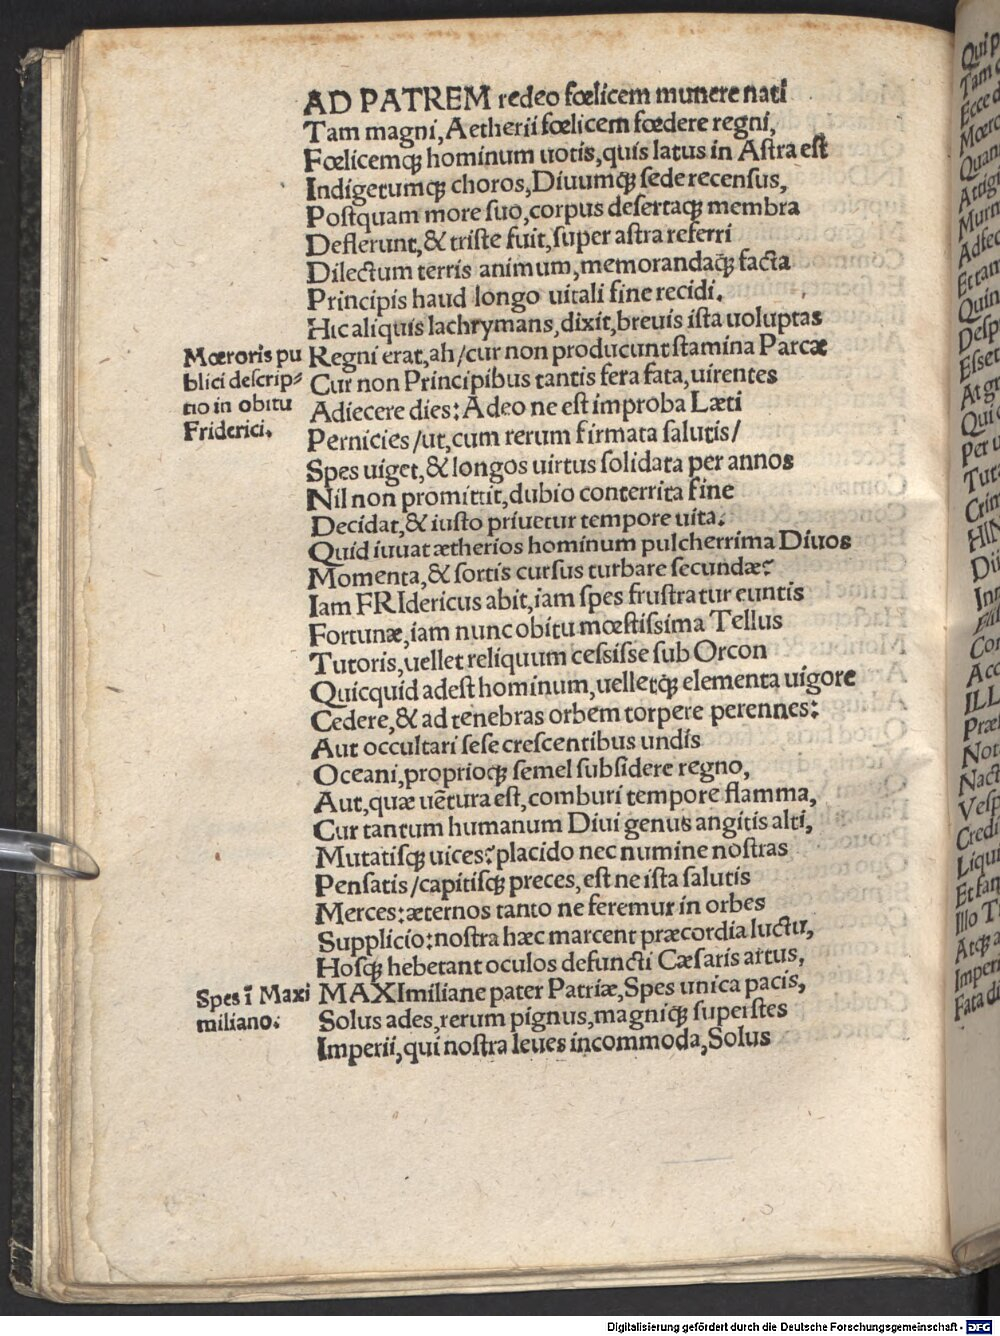 AD PATREM redeo fœlicem munere nati
Tam magni, Aetherii fœlicem fœdere regni,
Fœlicemqꝫ hominum uotis, quis latus in Astra est
Indigetumqꝫ choros, Diuumqꝫ sede recensus,
Postquam more suo, corpus desertaqꝫ membra
Deflerunt, & triste fuit, super astra referri
Dilectum terris animum, memorandaqꝫ facta
Principis haud longo uitali fine recidi.
Hic aliquis lachrymans, dixit, breuis ista uoluptas
Mœroris pu
blici descrip⸗
tio in obitu
Friderici.
Regni erat, ah/cur non producunt stamina Parcæ
Cur non Principibus tantis fera fata, uirentes
Adiecere dies: Adeo ne est improba Læti
Pernicies/ut, cum rerum firmata salutis/
Spes uiget, & longos uirtus solidata per annos
Nil non promittit, dubio conterrita fine
Decidat, & iusto priuetur tempore uita.
Quid iuuat ætherios hominum pulcherrima Diuos
Momenta, & sortis cursus turbare secundæ?
Iam FRIdericus abit, iam spes frustratur euntis
Fortunæ, iam nunc obitu mœstissima Tellus
Tutoris, uellet reliquum cessisse sub Orcon
Quicquid adest hominum, uelletqꝫ elementa uigore
Cedere, & ad tenebras orbem torpere perennes:
Aut occultari sese crescentibus undis
Oceani, proprioqꝫ semel subsidere regno,
Aut, quæ uētura est, comburi tempore flamma,
Cur tantum humanum Diui genus angitis alti,
Mutatisqꝫ uices? placido nec numine nostras
Pensatis/capitisqꝫ preces, est ne ista salutis
Merces: æternos tanto ne feremur in orbes
Supplicio: nostra hæc marcent præcordia luctu,
Hosqꝫ hebetant oculos defuncti Cæsaris artus,
Spes ī Maxi
miliano.
MAXImiliane pater Patriæ, Spes unica pacis,
Solus ades, rerum pignus, magniqꝫ superstes
Imperii, qui nostra leues incommoda, Solus
Digitalisierung gefördert durch die Deutsche Forschungsgemeinschaft - DFG